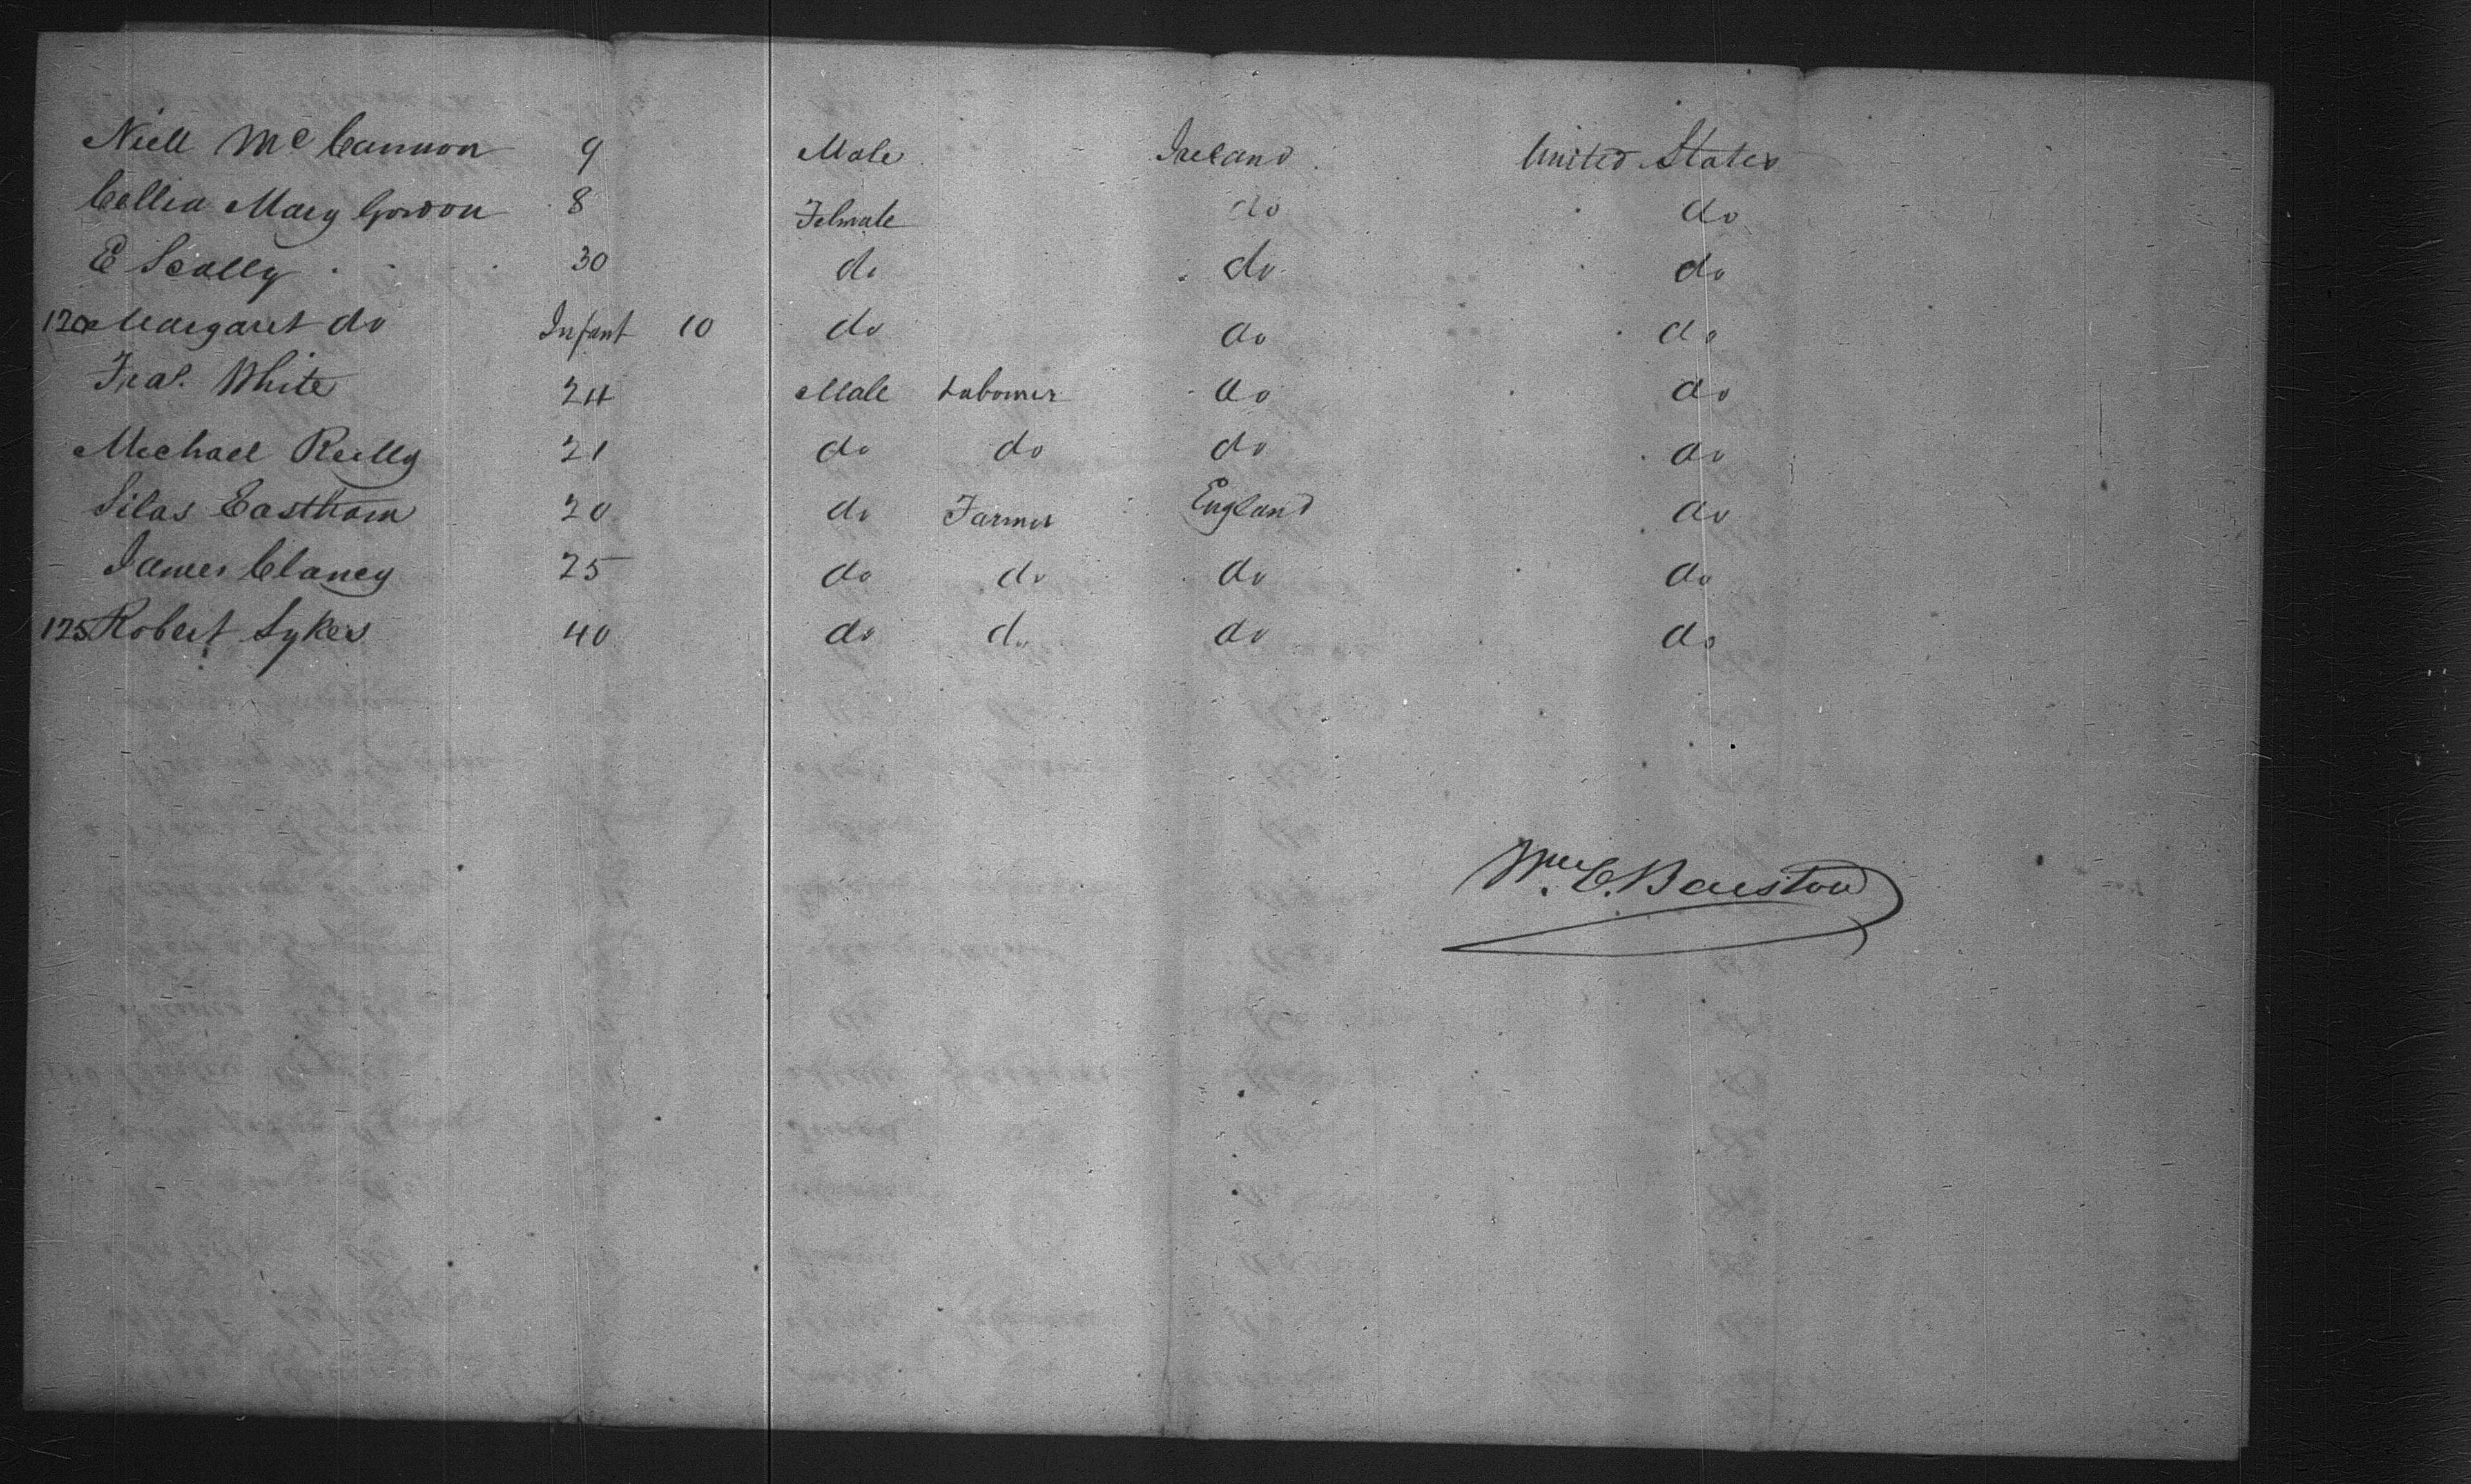 Niell Mc Cannon 9 Male Ireland United States
Cellia Mary Gordon 8 Felmale do do
E Scally 30 do do do
120 Margaret do Infant 10 do do do
Fras. White 24 Male Labourer do do
Michael Reilly 21 do do do do
Silas Eastham 20 do Farmer England do
James Clancy 25 do do do do
125 Robert Sykes 40 do do do do
Wm. C. Barstow